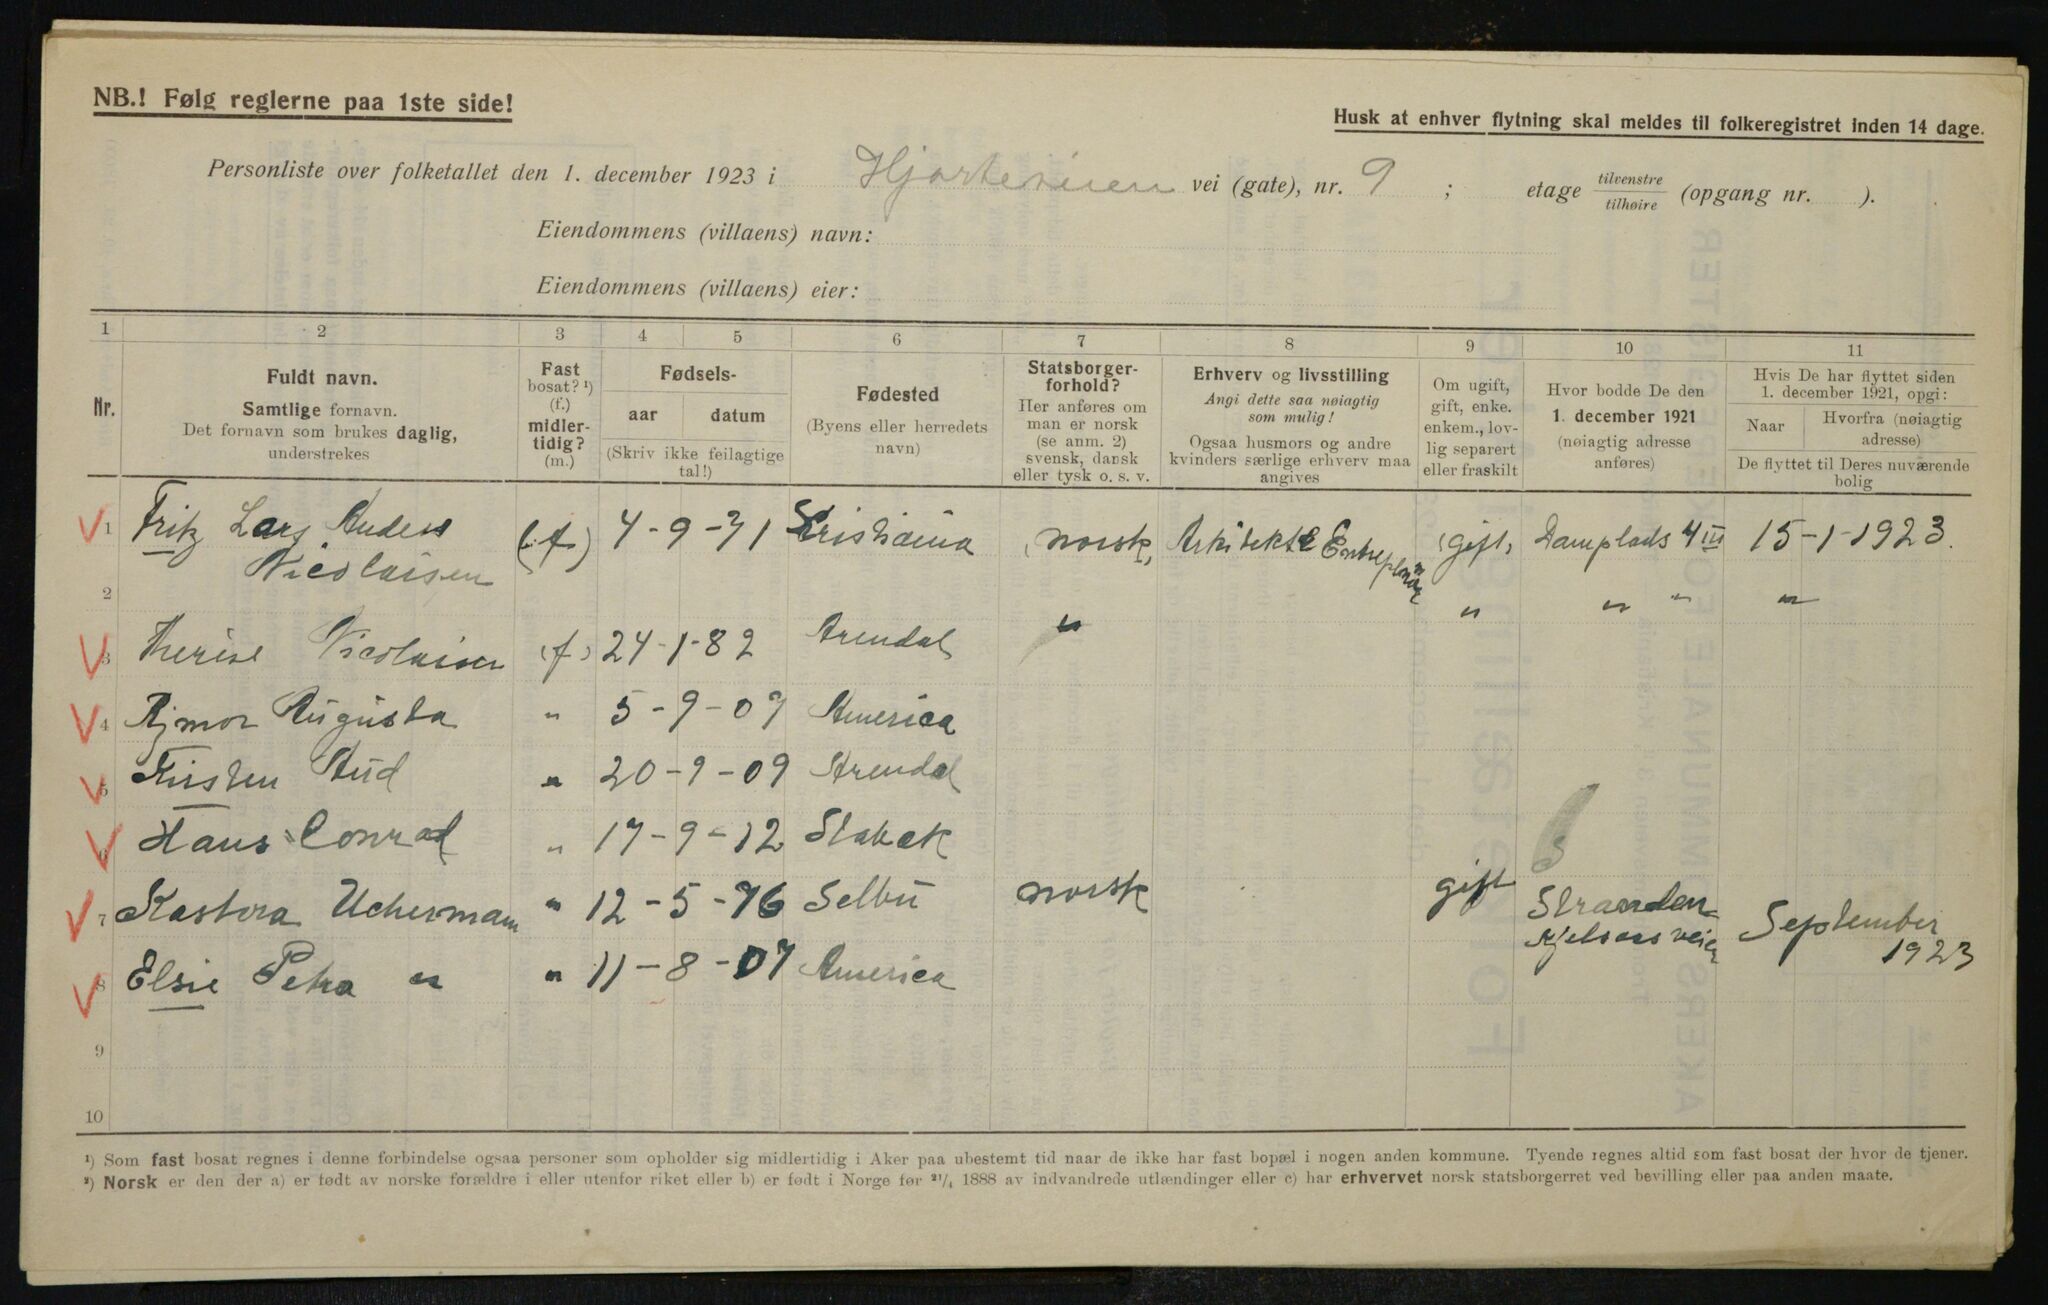 NB.! Følg reglerne paa 1ste side!
Husk at enhver flytning skal meldes til folkeregistret inden 14 dage.
Personliste over folketallet den 1. december 1923 i Hjorteveien vei (gate), nr. 9 ; etage tilvenstre/tilhøire (opgang nr. ).
Eiendommens (villaens) navn:
Eiendommens (villaens) eier:
1 2 3 4 5 6 7 8 9 10 11
Nr.
Fuldt navn.
Samtlige fornavn.
Det fornavn som brukes daglig,
understrekes
Fast
bosat? ¹)
(f.)
midler-
tidig?
(m.)
Fødsels-
aar datum
(Skriv ikke feilagtige
tal!)
Fødested
(Byens eller herredets
navn)
Statsborger-
forhold?
Her anføres om
man er norsk
(se anm. 2)
svensk, dansk
eller tysk o. s. v.
Erhverv og livsstilling
Angi dette saa nøiagtig
som mulig!
Ogsaa husmors og andre
kvinders særlige erhverv maa
angives
Om ugift,
gift, enke.
enkem., lov-
lig separert
eller fraskilt
Hvor bodde De den
1. december 1921
(nøiagtig adresse
anføres)
Hvis De har flyttet siden
1. december 1921, opgi:
Naar Hvorfra (nøiagtig
adresse)
De flyttet til Deres nuværende
bolig
1 Fritz Lars Anders (f) 4-9-71 Kristiania norsk, Arkitekt & gift Damplads 4 III 15-1-1923.
Nicolaisen
2 " " " "
3 Therese Nicolaisen (f) 24-1-82 Arendal "
4 Augusta " 5-9-07 America
5 Kirsten Aud " 20-9-09 Arendal
6 Hans Conrad " 17-9-12 Stabæk
7 Kastora Ucherman " 12-5-76 Selbu norsk gift Stranden September
Kjelsaasveien 1923
8 Elsie Petra " " 11-8-07 America
9
10
¹) Som fast bosat regnes i denne forbindelse ogsaa personer som opholder sig midlertidig i Aker paa ubestemt tid naar de ikke har fast bopæl i nogen anden kommune. Tyende regnes altid som fast bosat der hvor de tjener.
²) Norsk er den der a) er født av norske forældre i eller utenfor riket eller b) er født i Norge før ²¹/₄ 1888 av indvandrede utlændinger eller c) har erhvervet norsk statsborgerret ved bevilling eller paa anden maate.